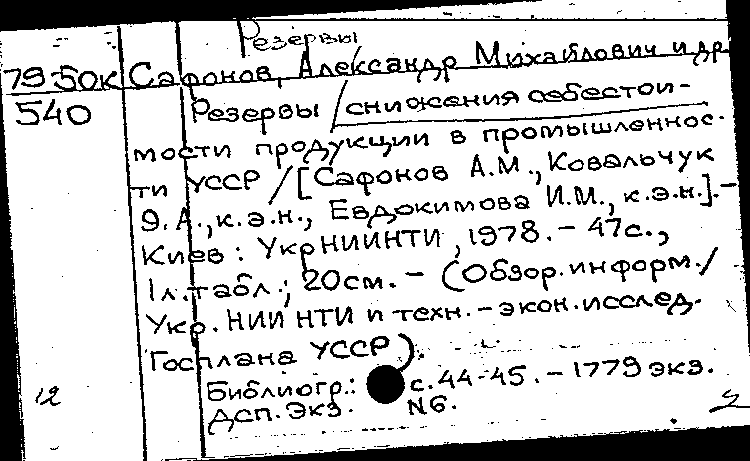 Резервы
79-50к Сафонов, Александр Михайлович и др
540 Резервы / снижения себестои-
мости продукции в промышленнос-
ти УССР / [Сафонов А.М., Ковальчук
Э.А., к.э.н., Евдокимова И.М., к.э.н.].-
Киев: УкрНИИНТИ, 1978. - 47с.,
1л.табл.; 20см. - (Обзор.информ./
Укр. НИИ НТИ и техн.-экон.исслед.
Госплана УССР).
12 Библиогр.: с.44-45. - 1779 экз.
ДСП. Экз. N6.